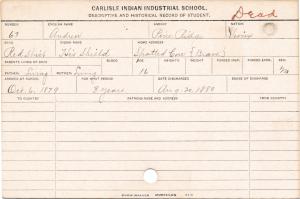 CARLISLE INDIAN INDUSTRIAL SCHOOL.
Dead
DESCRIPTIVE AND HISTORICAL RECORD OF STUDENT.
NUMBER ENGLISH NAME AGENCY NATION
67 Andrew Pine Ridge Sioux
INDIAN NAME HOME ADDRESS
Red Shirt His Shield Spotted Cow (Brave)
PARENTS LIVING OR DEAD BLOOD AGE HEIGHT WEIGHT SEX
FATHER, Living MOTHER, Living 16 M
ARRIVED AT SCHOOL FOR WHAT PERIOD DATE DISCHARGED CAUSE OF DISCHARGE
Oct. 6, 1879 3 years Aug. 20, 1880
TO COUNTRY PATRONS NAME AND ADDRESS FROM COUNTRY